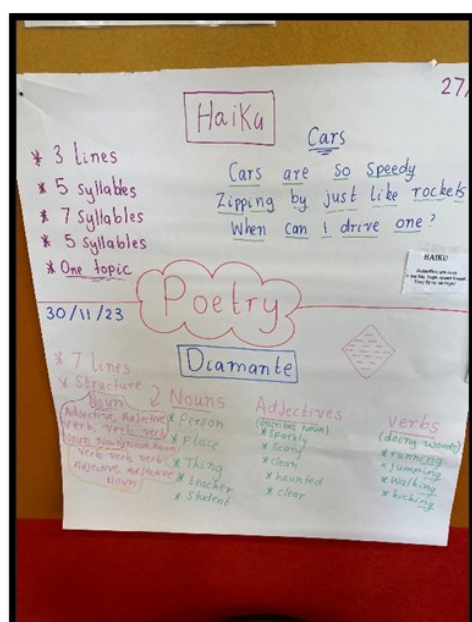 27/
Haiku
* 3 lines
* 5 syllables
* 7 syllables
* 5 syllables
* One topic
Cars
Cars are so speedy
Zipping by just like rockets
When can I drive one?
HAIKU
Poetry
30/11/23
Diamante
* 7 lines
* Structure
Noun
Adjective, Adjective
Verb, Verb, verb
Noun Noun Noun Noun
Verb verb verb
Adjective Adjective
Noun
Nouns
* Person
* Place
* Thing
* teacher
* Student
Adjectives
(describes noun)
* Sparkly
* Scary
* clean
* haunted
* clear
Verbs
(doing words)
* running
* Jumping
* Walking
* kicking